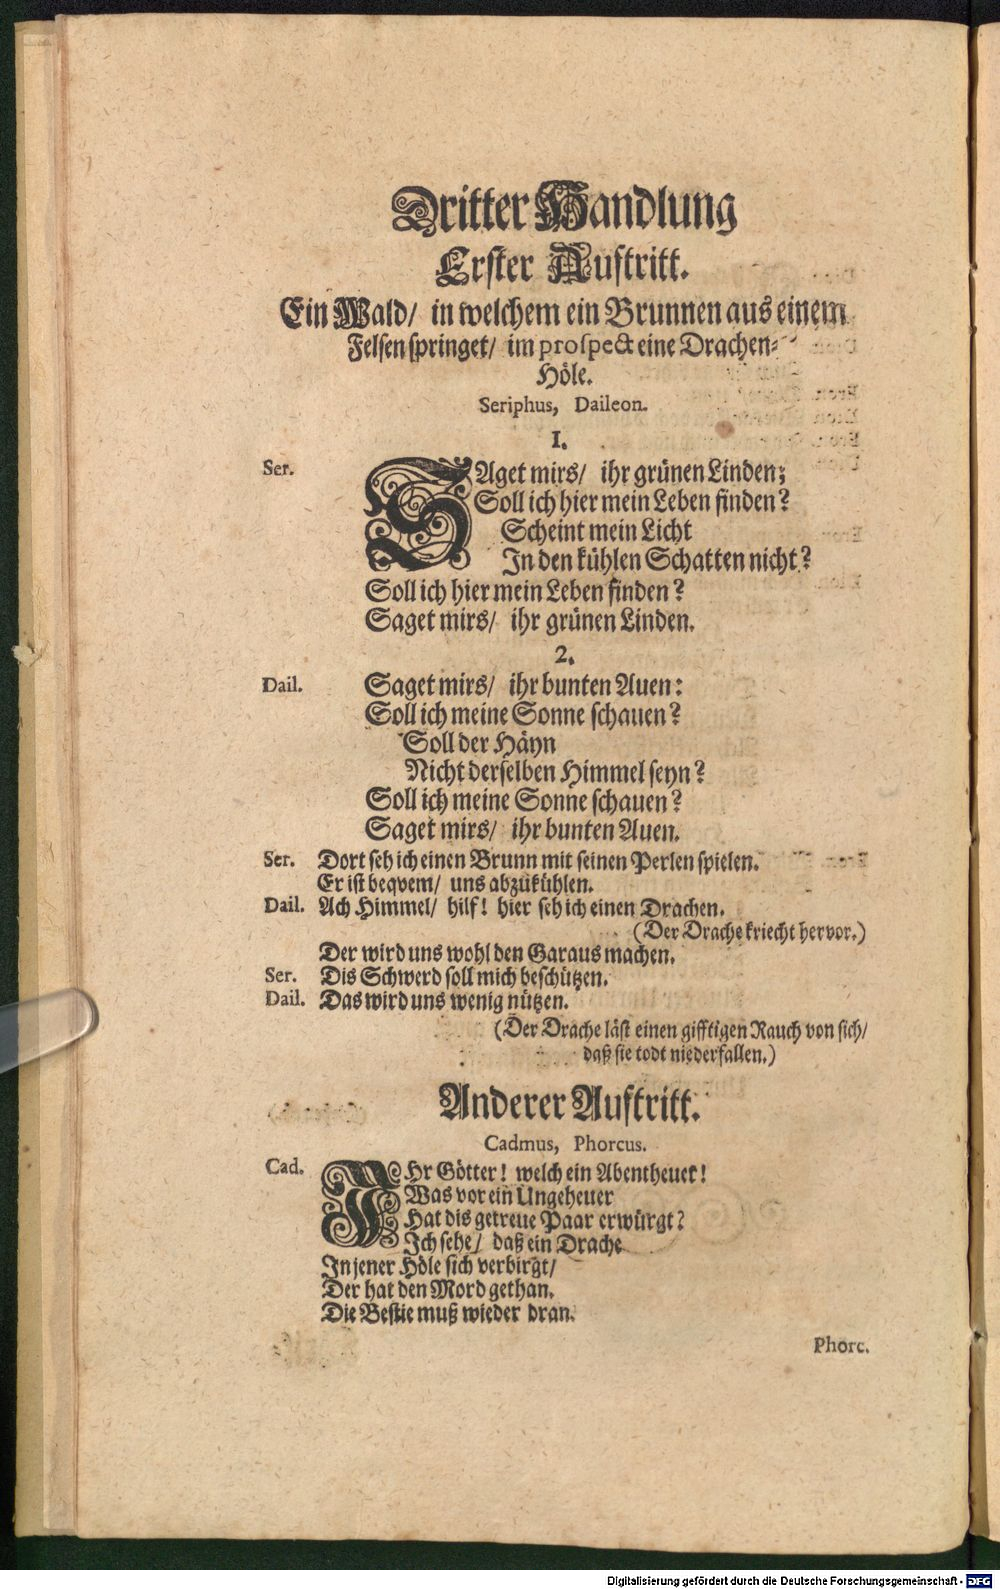 Dritter Handlung
Erster Auftritt.
Ein Wald/ in welchem ein Brunnen aus einem
Felsen springet/ im prospect eine Drachen-
Höle.
Seriphus, Daileon.
I.
Ser. SAget mirs/ ihr grünen Linden;
Soll ich hier mein Leben finden?
Scheint mein Licht
In den kühlen Schatten nicht?
Soll ich hier mein Leben finden?
Saget mirs/ ihr grünen Linden.
2.
Dail. Saget mirs/ ihr bunten Auen:
Soll ich meine Sonne schauen?
Soll der Häyn
Nicht derselben Himmel seyn?
Soll ich meine Sonne schauen?
Saget mirs/ ihr bunten Auen.
Ser. Dort seh ich einen Brunn mit seinen Perlen spielen.
Er ist beqvem/ uns abzukühlen.
Dail. Ach Himmel/ hilf! hier seh ich einen Drachen.
(Der Drache kriecht hervor.)
Der wird uns wohl den Garaus machen.
Ser. Dis Schwerd soll mich beschützen.
Dail. Das wird uns wenig nützen.
(Der Drache läst einen gifftigen Rauch von sich/
daß sie todt niederfallen.)
Anderer Auftritt.
Cadmus, Phorcus.
Cad. IHr Götter! welch ein Abentheuer!
Was vor ein Ungeheuer
Hat dis getreue Paar erwürgt?
Ich sehe/ daß ein Drache
In jener Höle sich verbirgt/
Der hat den Mord gethan.
Die Bestie muß wieder dran.
Phorc.
Digitalisierung gefördert durch die Deutsche Forschungsgemeinschaft - DFG